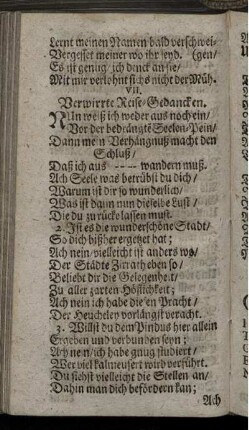 Lernt meinen Namen bald verschwei-
Vergesset meiner wo ihr seyd. (gen/
Es ist genug / ich denck an sie/
Mit mir verlohnt sichs nicht der Müh.
VII.
Verwirrte Reise-Gedancken.
NUn weiß ich weder aus noch ein/
Vor der bedrängte Seelen-Pein/
Dann mein Verhängnuß macht den
Schluß/
Daß ich aus ---- wandern muß.
Ach Seele was betrübst du dich/
Warum ist dir so wunderlich/
Was ist dann nun dieselbe Lust/
Die du zurücke lassen must.
2. Ist es die wunderschöne Stadt/
So dich bißher ergetzet hat;
Ach nein/ vielleicht ist anders wo/
Der Städte Zierath eben so/
Beliebt dir die Gelegenheit/
Zu aller zarten Höflichkeit;
Ach nein ich habe die en Pracht/
Der Heucheley vorlängst veracht.
3. Willst du dem Pindus hier allein
Ergeben und verbunden seyn;
Ach nein/ ich habe gnug studiert/
Wer viel kalmeusert wird verführt.
Du siehst vielleicht die Stellen an/
Dahin man dich befördern kan;
Ach